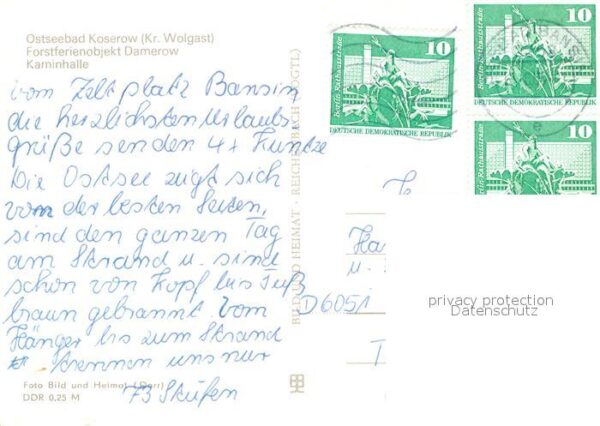 Ostseebad Koserow (Kr. Wolgast)
Forstferienobjekt Damerow
Kaminhalle
vom Zeltplatz Bansin
die herzlichsten Urlaubs-
grüße senden 4x Kuntze
Die Ostsee zeigt sich
von der besten Seiten,
sind den ganzen Tag
am Strand u. sind
schon von Kopf bis Fuß
braun gebrannt. Vom
Hänger bis zum Strand
trennen uns nur
73 Stufen
Foto Bild und Heimat (Darr)
DDR 0,25 M
BILD UND HEIMAT · REICHENBACH (VOGTL)
D6051
10
Berlin-Rathausstraße
DEUTSCHE DEMOKRATISCHE REPUBLIK
10
Berlin-Rathausstraße
DEUTSCHE DEMOKRATISCHE REPUBLIK
10
Berlin-Rathausstraße
u.
privacy protection
Datenschutz